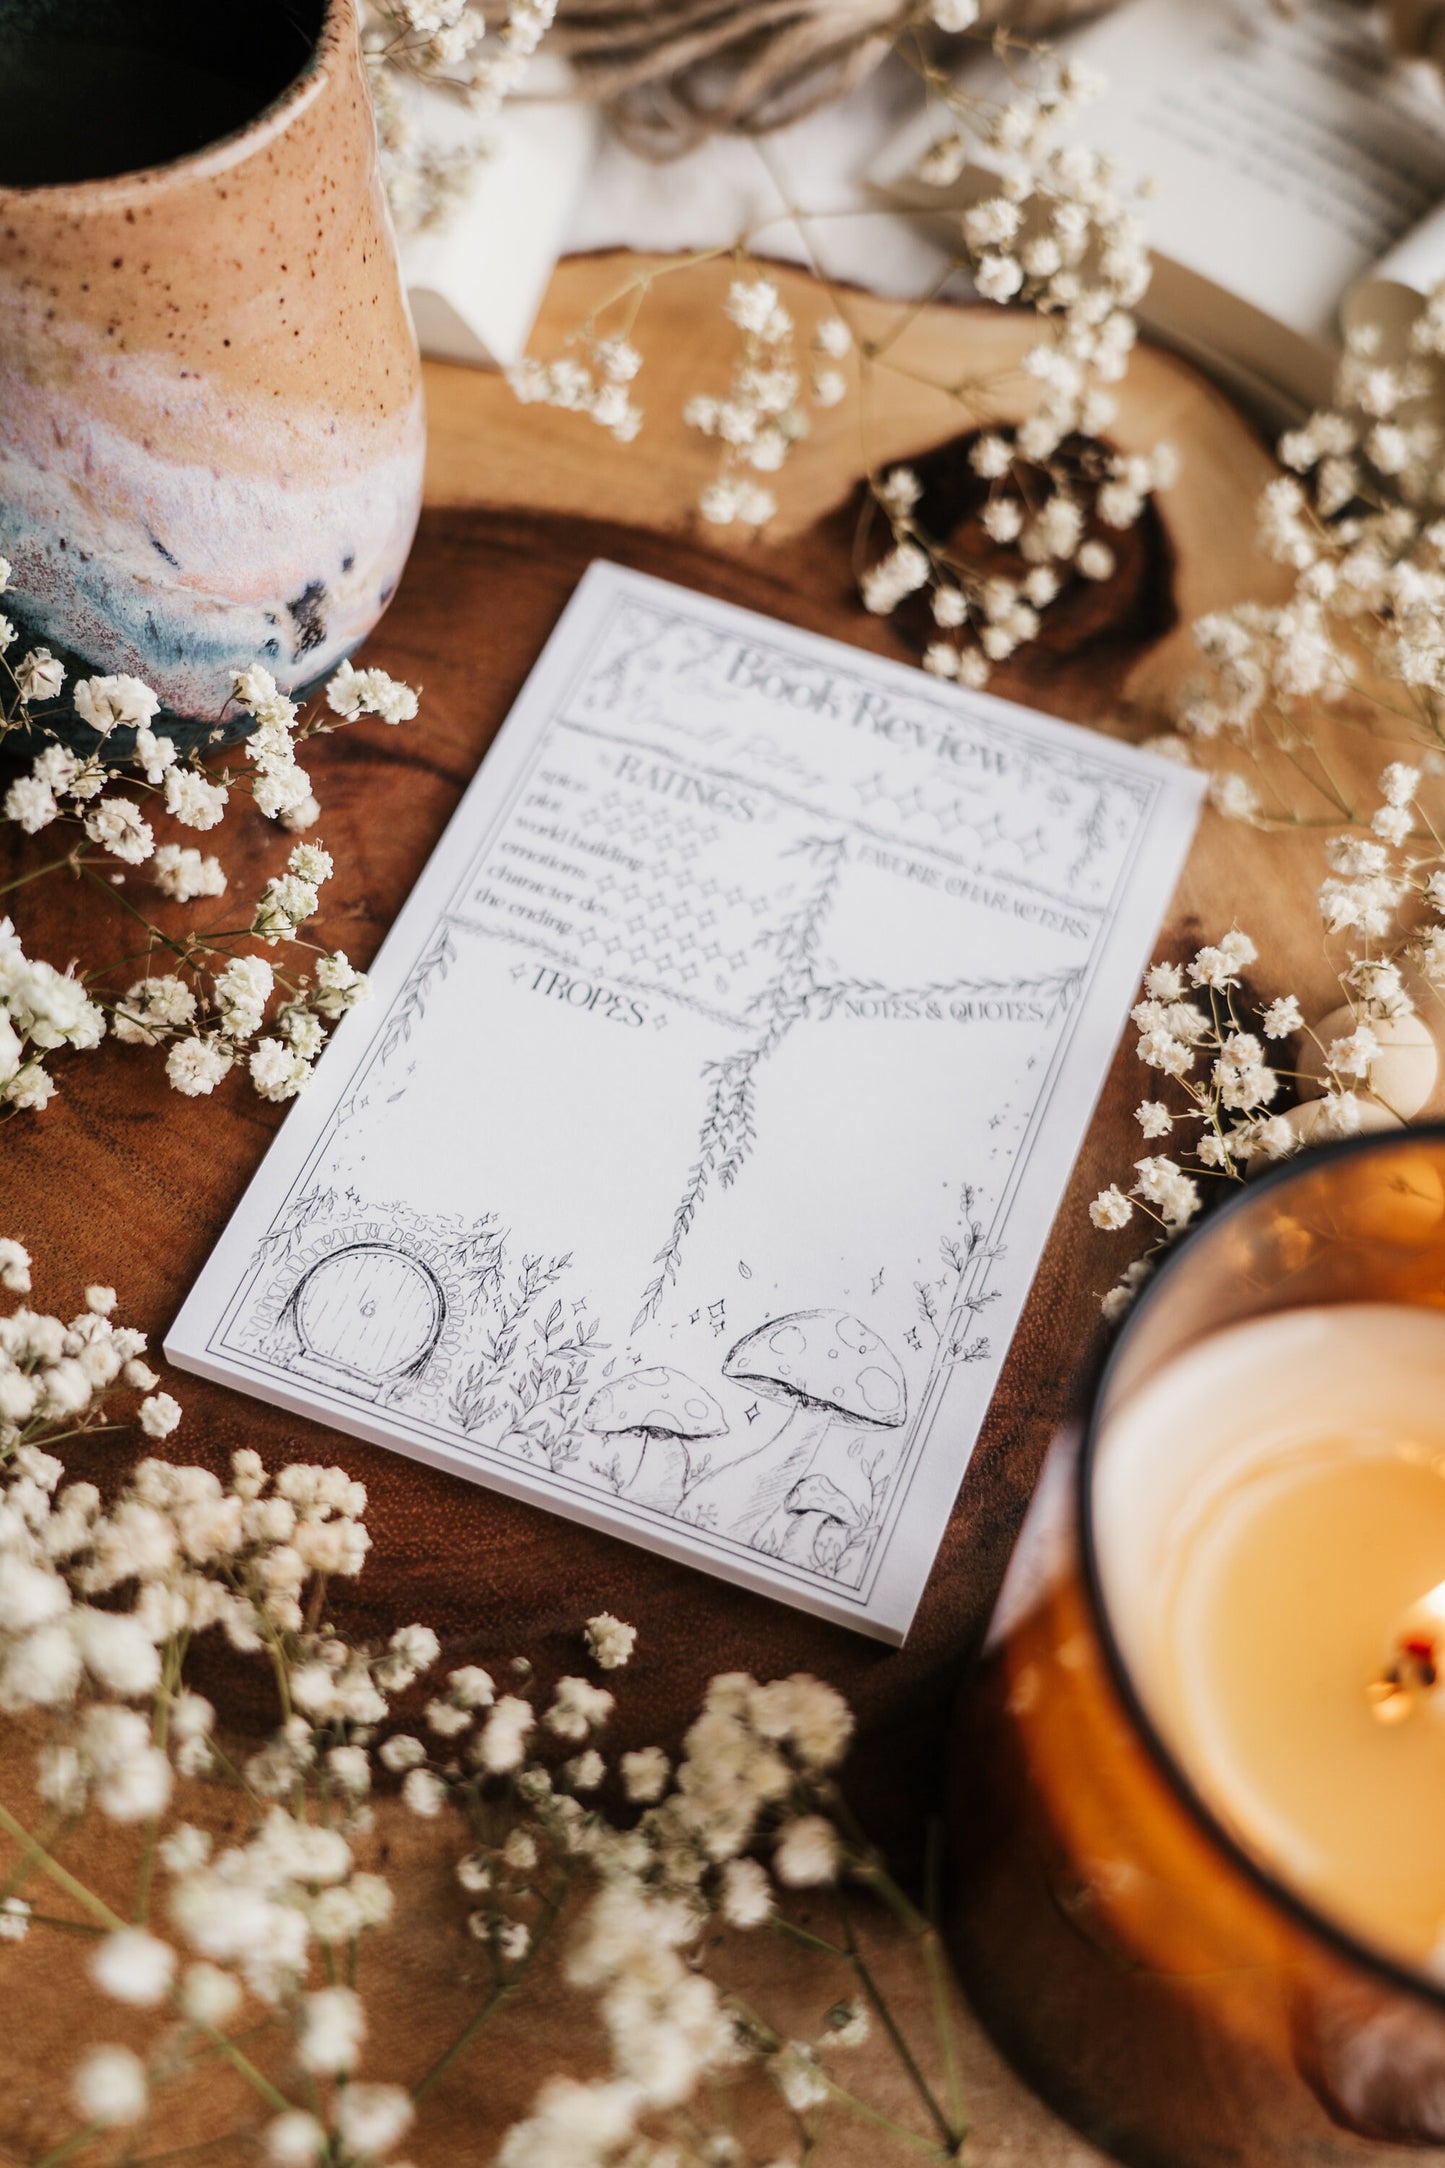 Book Review
Overall Rating
RATINGS
spice
plot
world building
emotions
character dev.
the ending
FAVORIE CHARACTERS
TROPES
NOTES & QUOTES